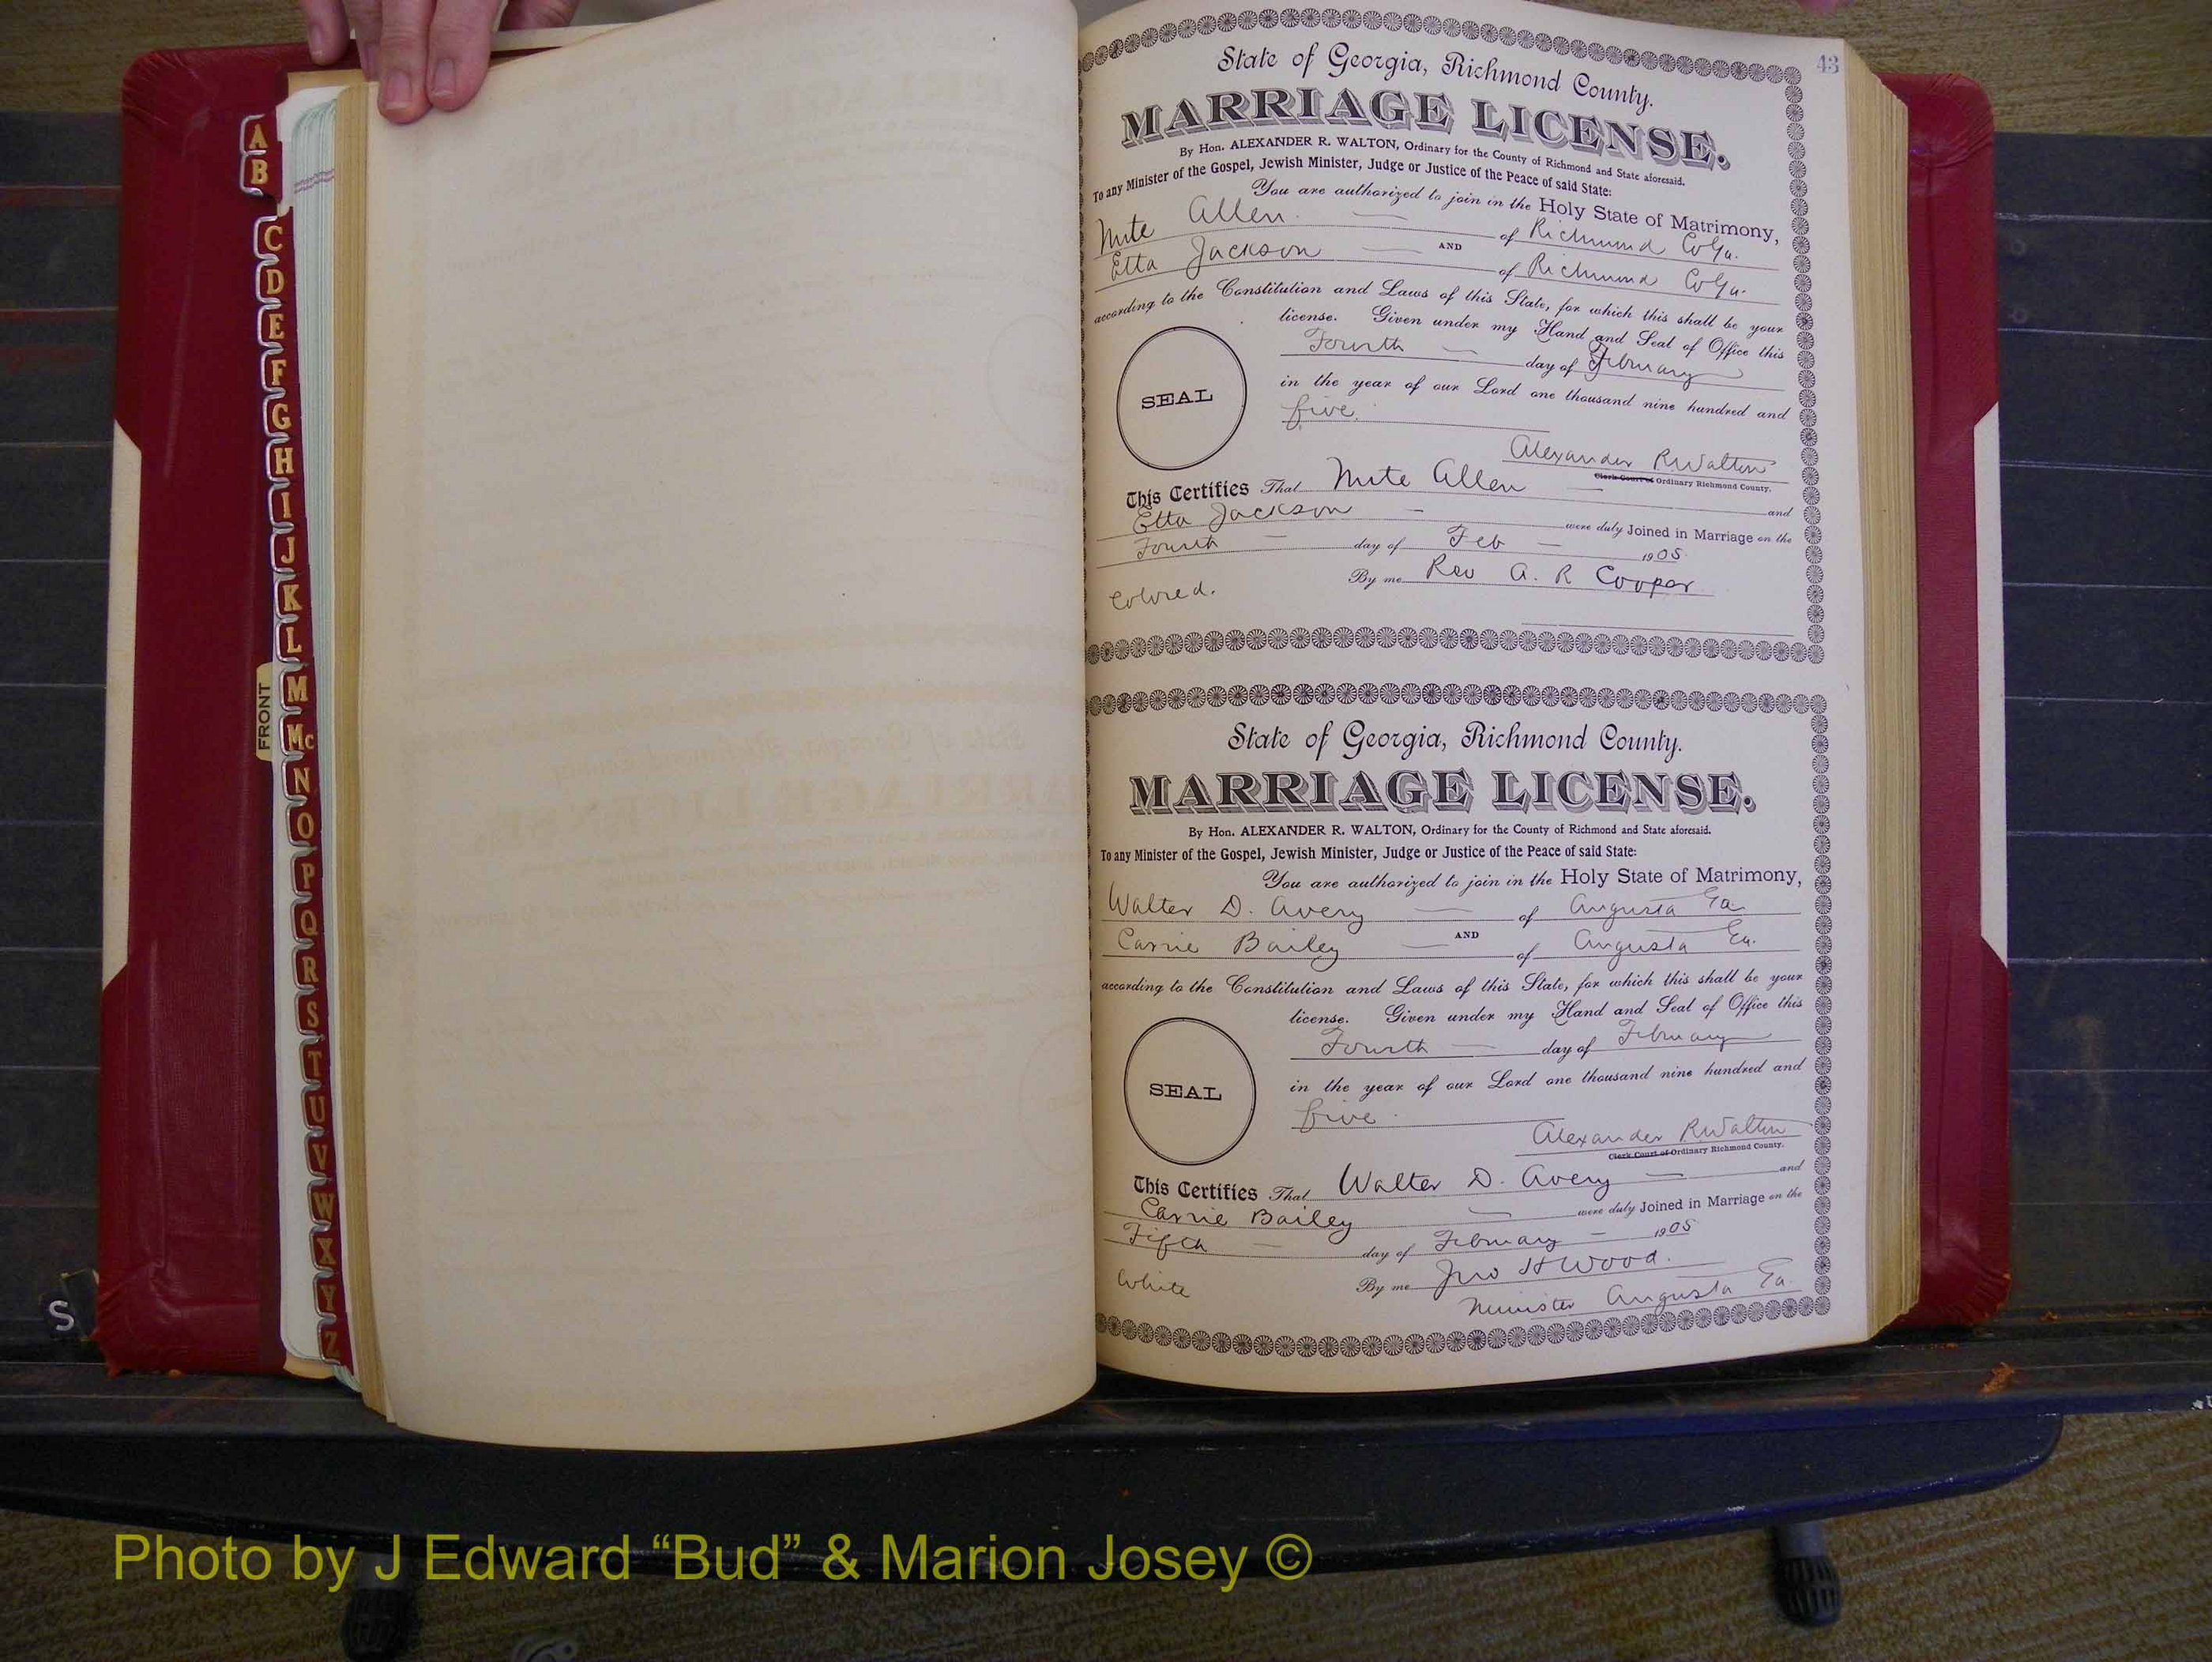 A
B
C
D
E
F
G
H
I
J
K
L
M
Mc
N
O
P
Q
R
S
T
U
V
W
X
Y
Z
FRONT
S
43
State of Georgia, Richmond County.
MARRIAGE LICENSE.
By Hon. ALEXANDER R. WALTON, Ordinary for the County of Richmond and State aforesaid.
To any Minister of the Gospel, Jewish Minister, Judge or Justice of the Peace of said State:
You are authorized to join in the Holy State of Matrimony,
Mute Allen of Richmond Co Ga.
AND
Etta Jackson of Richmond Co Ga.
according to the Constitution and Laws of this State, for which this shall be your
license. Given under my Hand and Seal of Office this
Fourth day of February
in the year of our Lord one thousand nine hundred and
five.
SEAL
Alexander R Walton
Clerk Court of Ordinary Richmond County.
This Certifies That Mute Allen and
Etta Jackson were duly Joined in Marriage on the
Fourth day of Feb 1905
By me Rev A. R Cooper
Colored.
State of Georgia, Richmond County.
MARRIAGE LICENSE.
By Hon. ALEXANDER R. WALTON, Ordinary for the County of Richmond and State aforesaid.
To any Minister of the Gospel, Jewish Minister, Judge or Justice of the Peace of said State:
You are authorized to join in the Holy State of Matrimony,
Walter D. Avery of Augusta Ga
AND
Carrie Bailey of Augusta Ga.
according to the Constitution and Laws of this State, for which this shall be your
license. Given under my Hand and Seal of Office this
Fourth day of February
in the year of our Lord one thousand nine hundred and
five.
SEAL
Alexander R Walton
Clerk Court of Ordinary Richmond County.
This Certifies That Walter D. Avery and
Carrie Bailey were duly Joined in Marriage on the
Fifth day of February 1905
By me Jno H Wood.
White
Minister Augusta Ga.
Photo by J Edward “Bud” & Marion Josey ©